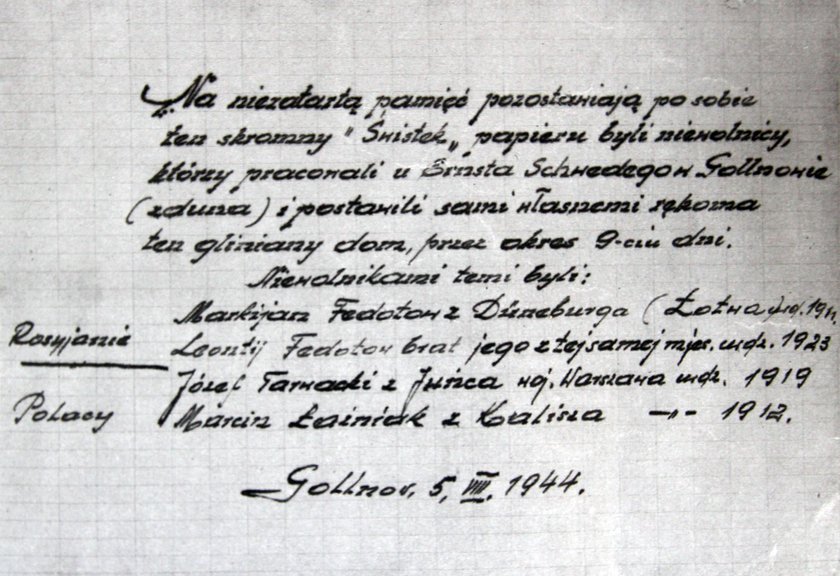 Na niezatartą pamięć pozostawiają po sobie
ten skromny "Świstek„ papieru byli niewolnicy,
którzy pracowali u Ernsta Schwedego w Gollnowie
(zduna) i postawili sami własnemi rękoma
ten gliniany dom, przez okres 9-ciu dni.
Niewolnikami temi byli:
Markijan Fedotow z Düneburga (Łotwa) urodz.
Rosyjanie
Leontij Fedotow brat jego z tej samej miejs. urodz. 1923
Józef Tarnacki z woj. Warszawa urodz. 1919
Polacy
Marcin Łaźniak z Kalisza —„— 1912.
Gollnov, 5, VIII, 1944.